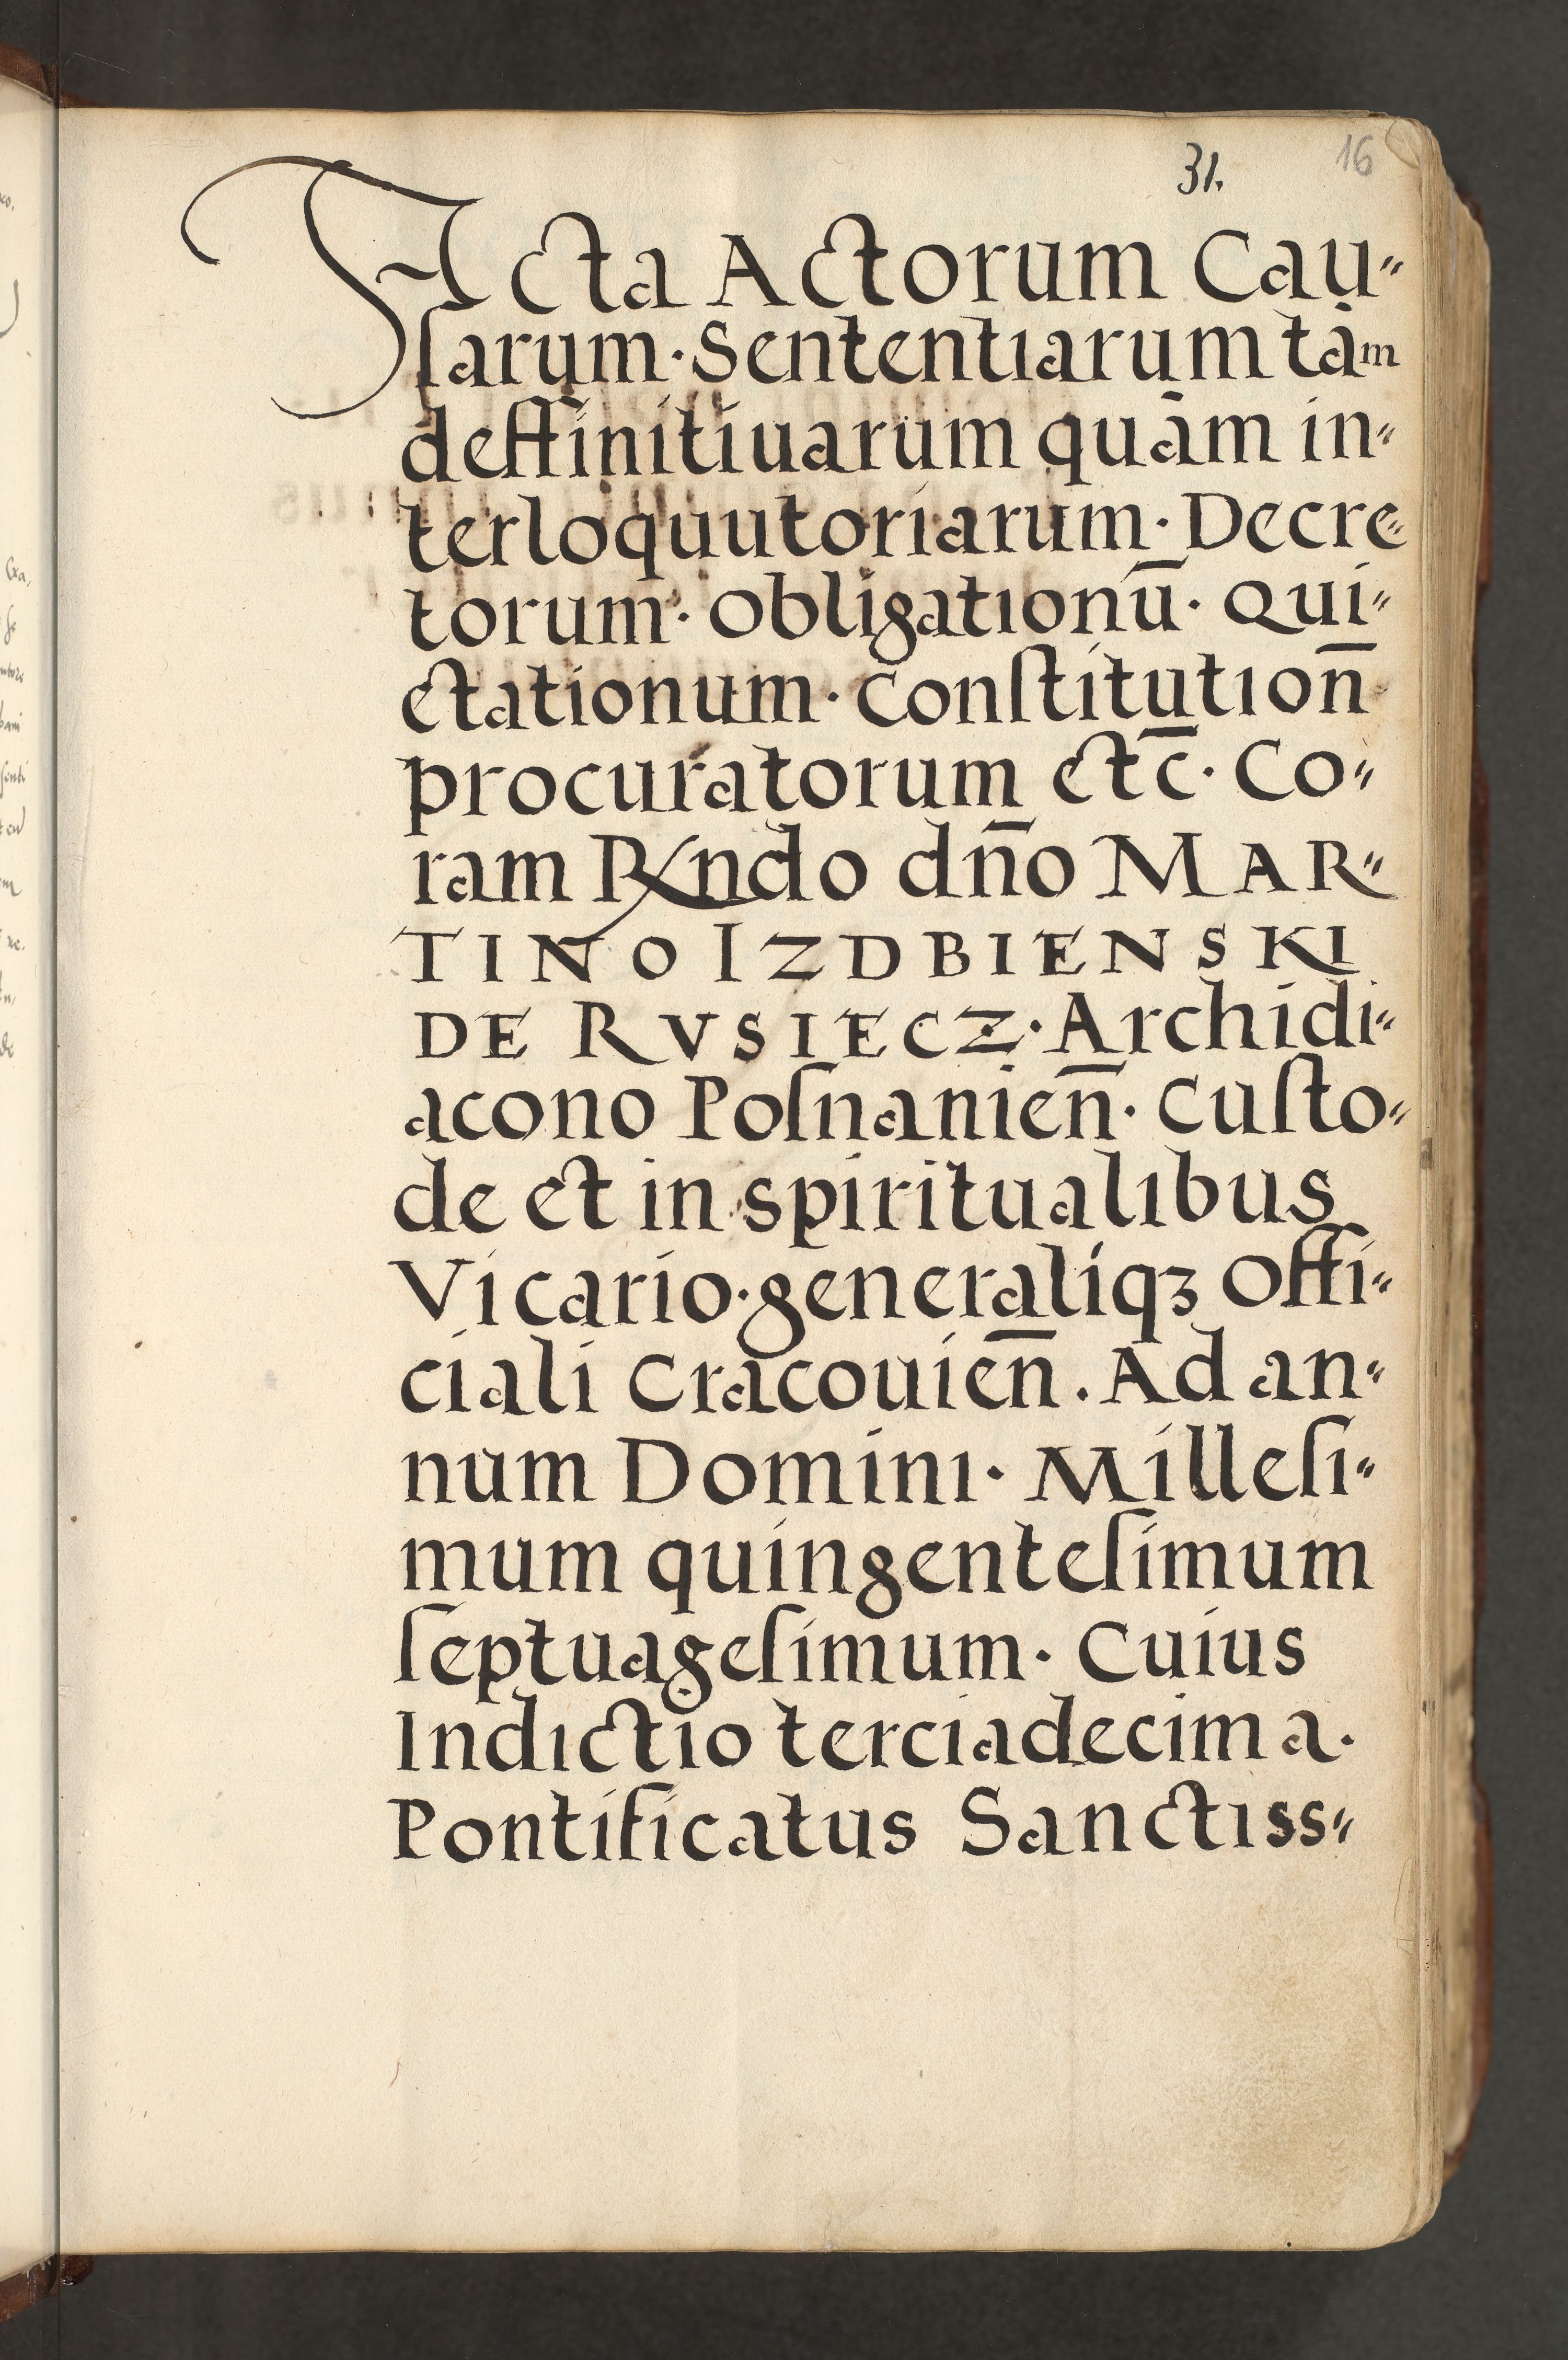 31. 16
Acta Actorum Cau„
ſarum · Sententiarum tàm
deffinitiuarum quàm in„
terloquutoriarum · Decre„
torum · Obligationū · Qui„
etationum · Conſtitution̄
procuratorum etc̄ · Co„
ram Rndo dn̄o MAR„
TINO IZDBIENSKI
DE RVSIECZ · Archidi„
acono Poſnanien̄ · Cuſto„
de et in spiritualibus
Vicario · generaliqꝫ Offi„
ciali Cracouien̄ . Ad an„
num Domini · Milleſi„
mum quingenteſimum
ſeptuageſimum · Cuius
Indictio terciadecima ·
Pontificatus Sanctiss„